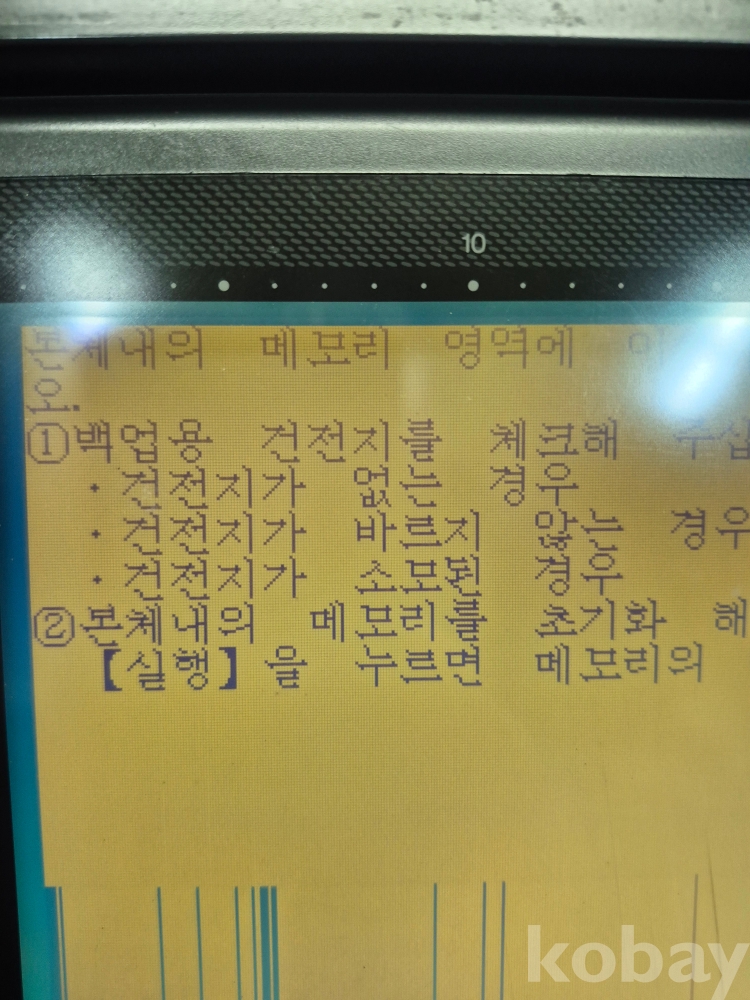 10
본체내의 메모리 영역에 이
오.
①백업용 건전지를 체크해 주십
・건전지가 없는 경우
・건전지가 바르지 않는 경우
・건전지가 소모된 경우
②본체내의 메모리를 초기화 해
【실행】을 누르면 메모리의
kobay